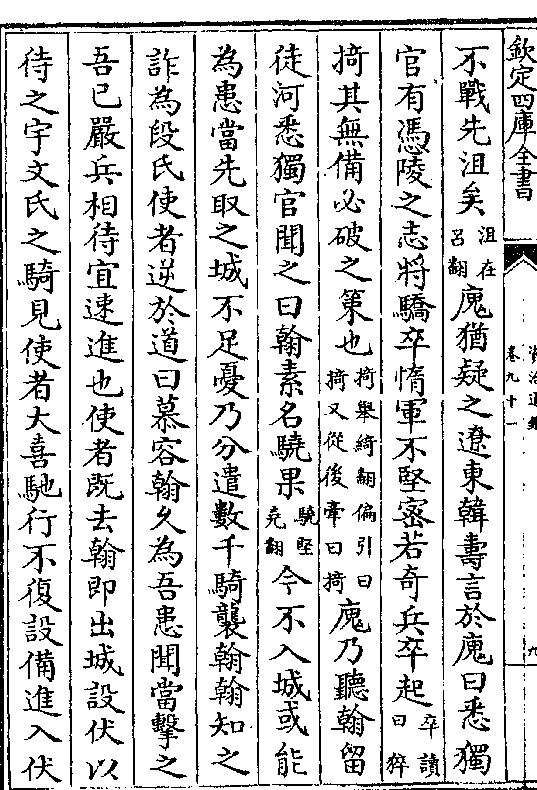 欽定四庫全書
資治通鑑
卷九十一
九
不戰先沮矣沮在呂翻廆猶疑之遼東韓壽言於廆曰悉獨
官有憑陵之志將驕卒惰軍不堅密若奇兵卒起卒讀曰猝
掎其無備必破之策也掎舉綺翻偏引曰掎又從後牽曰掎廆乃聽翰留
徒河悉獨官聞之曰翰素名驍果驍堅堯翻今不入城或能
為患當先取之城不足憂乃分遣數千騎襲翰翰知之
詐為段氏使者逆於道曰慕容翰久為吾患聞當擊之
吾已嚴兵相待宜速進也使者既去翰即出城設伏以
待之宇文氏之騎見使者大喜馳行不復設備進入伏